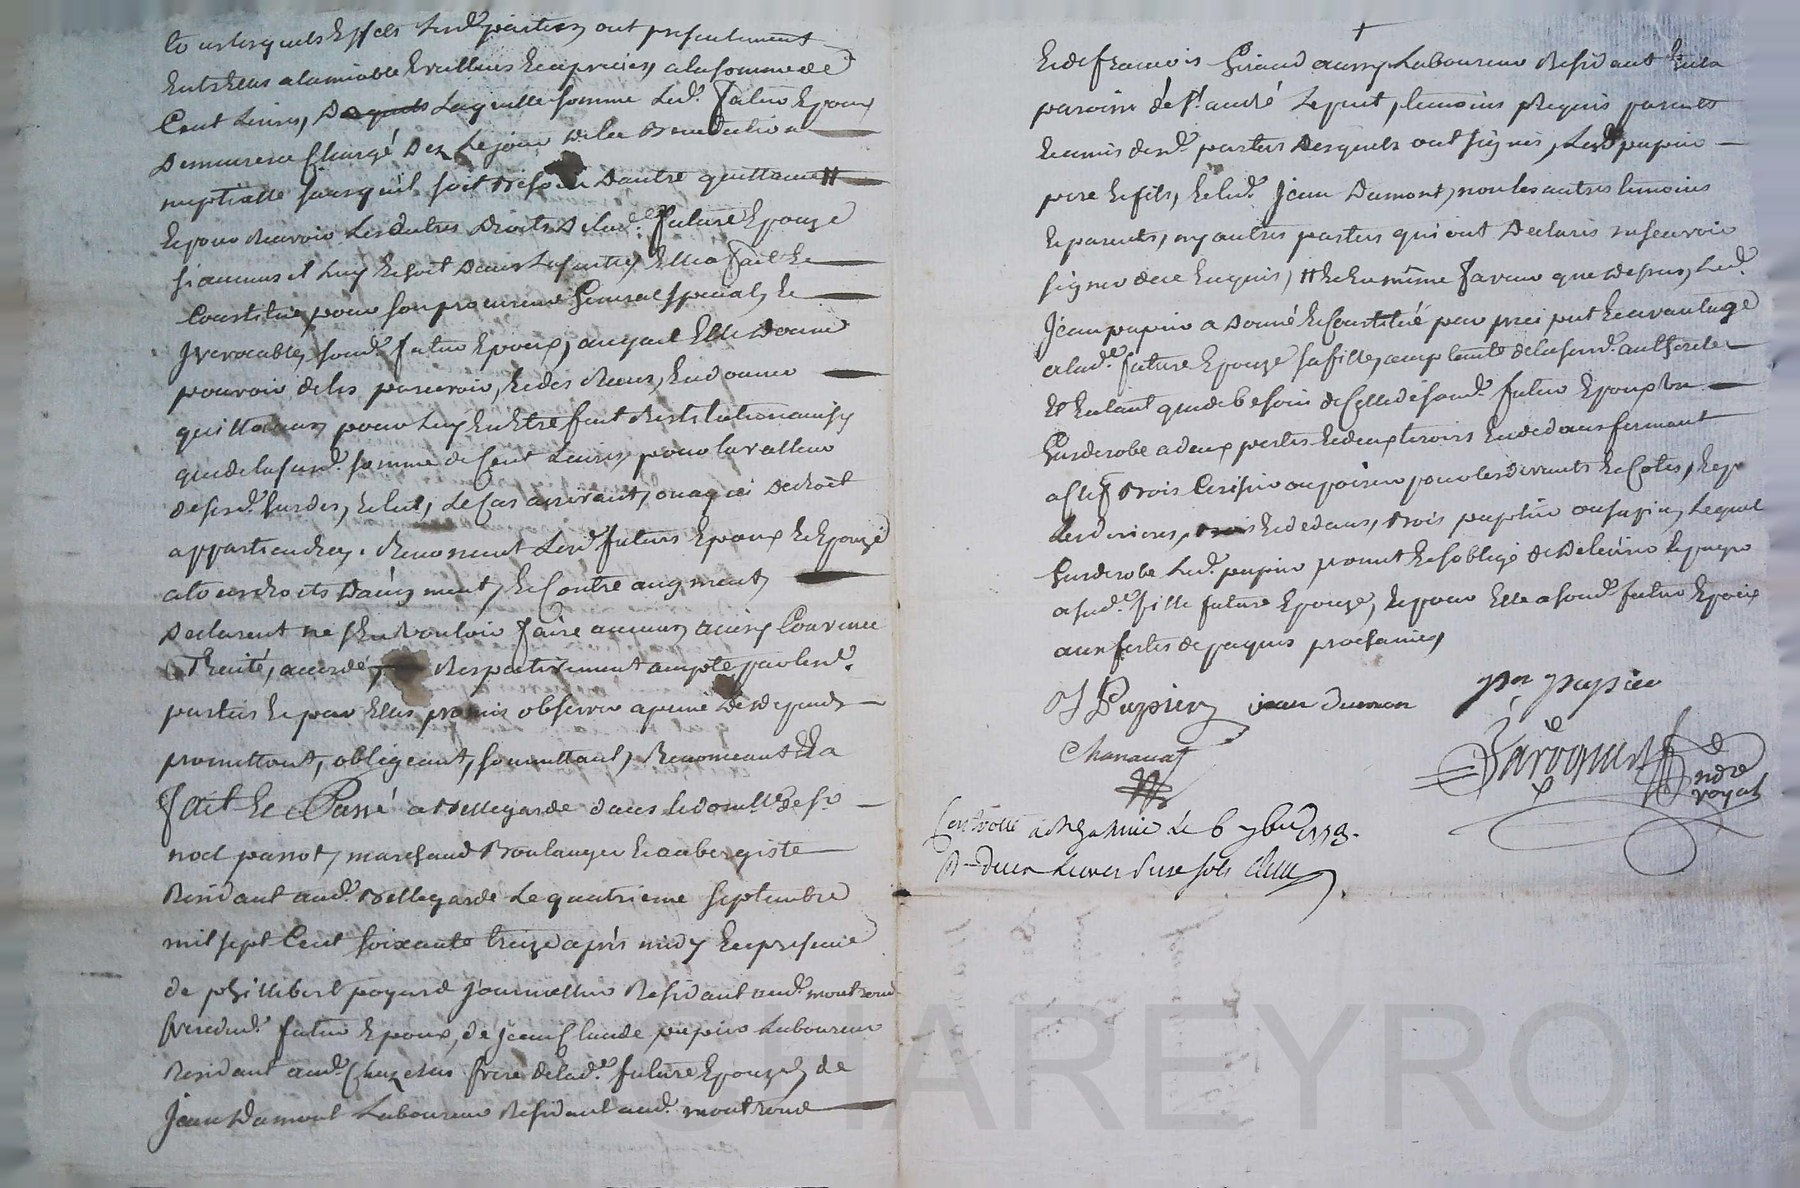 tous lesquels effets lesd. parties ont presentement
entr'elles alamiable evallués et apreciés, alasomme de
Cent Livres, Desquels Laquelle somme Led. futur Epoux
Demeurera Chargé Dez Lejour Dela Benediction
nuptialle sans quil soit Besoin Dautre quittance #
Et pour Recevoir Les autres Droits De lad. future Epouze
si aucuns il luy Echoit Dans La suitte, Elle a fait Et
Constitué, pour son procureur General special, Et
Jrrevocable, sond. futur Epoux, auquel Elle Donne
pouvoir de les percevoir, Et des Reçus, En donner
quittances, pour Luy En Etre fait Restitution ainsy
que de la susd. somme de Cent Livres, pour la valleur
de sesd. hardes, Et lit, Le Cas arrivant, ou a qui De droit
appartiendra. Renoncent Lesd. futurs Epoux Et Epouze
a tous droits Daugment, Et Contre augment,
Declarent ne s'En Vouloir faire aucun, ainsy Convenu
Traité, accordé, Respectivement accepté par lesd.
parties Et par Elles promis observer a peine De Depends
promettant, obligeant, soumettant, Renonceant Etca
fait Et Passé a Bellegarde dans le domlle de sr
noel parrot, marchand Boulanger Et aubergiste
Residant aud. Bellegarde Le quatrieme septembre
mil sept Cent soixante treize après midy En presence
de phillibert poyard journallier Residant aud. montrond
frere dud. futur Epoux, de jean Claude pupier Laboureur
Residant aud. Chazelles frere delad. future Epouze, de
Jean Dumont Laboureur Residant aud. montrond
Et de francois Giraud aussy Laboureur Residant En la
paroisse de st. andré Le puit, temoins Requis parents
Et amis desd. parties Desquels ont signés, Led. pupier
pere Et fils, Et led. Jean Dumont, non les autres temoins
Et parents, ny autres parties qui ont Declarés ne scavoir
signer de ce Enquis, # Et En même faveur que Dessus, Led.
Jean pupier a Donné Et Constitué par preciput Et avantage
a lad. future Epouze sa fille, acceptante de la susd. authorité
Et En tant que de besoin de Celle de sond. futur Epoux Un
Garderobe a deux portes Et deux tiroirs En dedans fermant
a Clef Bois Cerisier ou poirier pour les devants Et Cotés, Et pr
les derrieres, Et dedans, Bois peuplier ou sapin, Lequel
Garderobe Led. pupier promet Et s'oblige de Delivrer Et payer
a sad. fille future Epouze, Et pour Elle a sond. futur Epoux
aux festes de paques prochaines,
J Pupier jean dumon pre pupier
Chanavat
Controllé a St Galmier Le 6 7bre 1773.